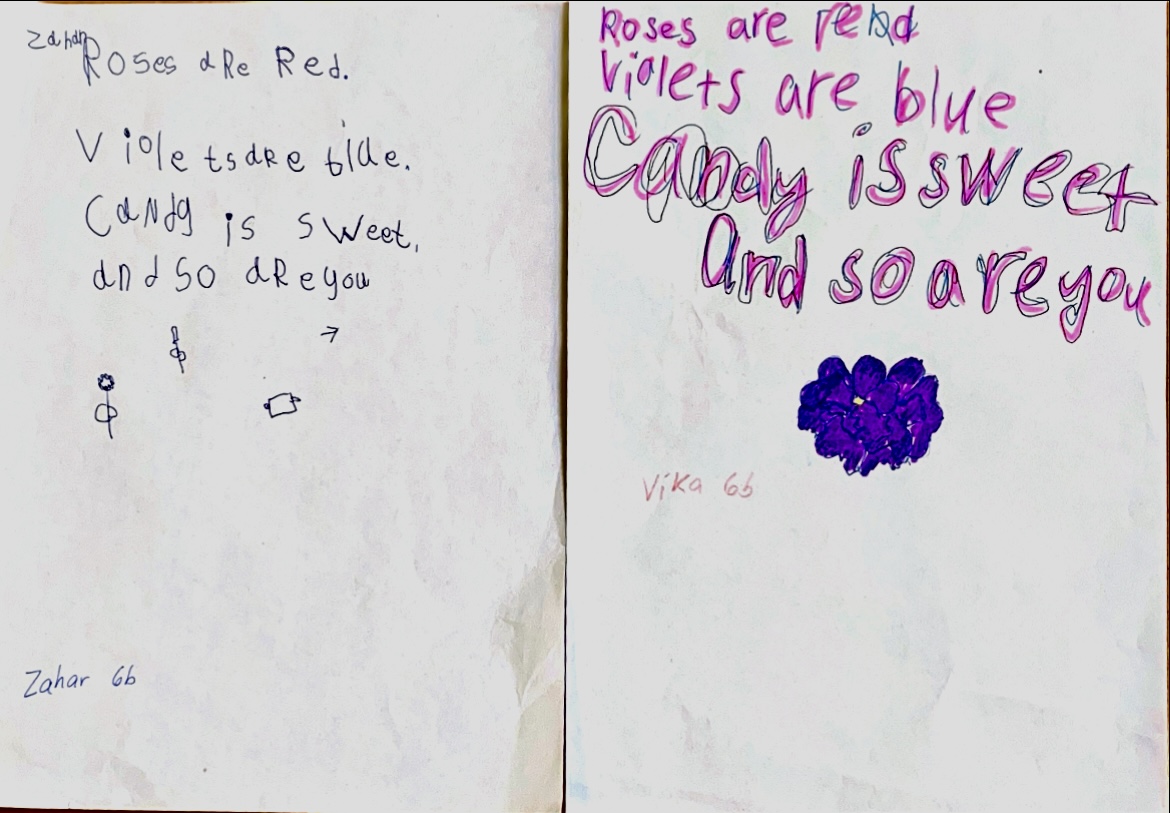 Zahar
Roses are Red.
Violets are blue.
Candy is sweet,
and so are you
Zahar 6b
Roses are read
Violets are blue
Candy is sweet
And so are you
Vika 6b